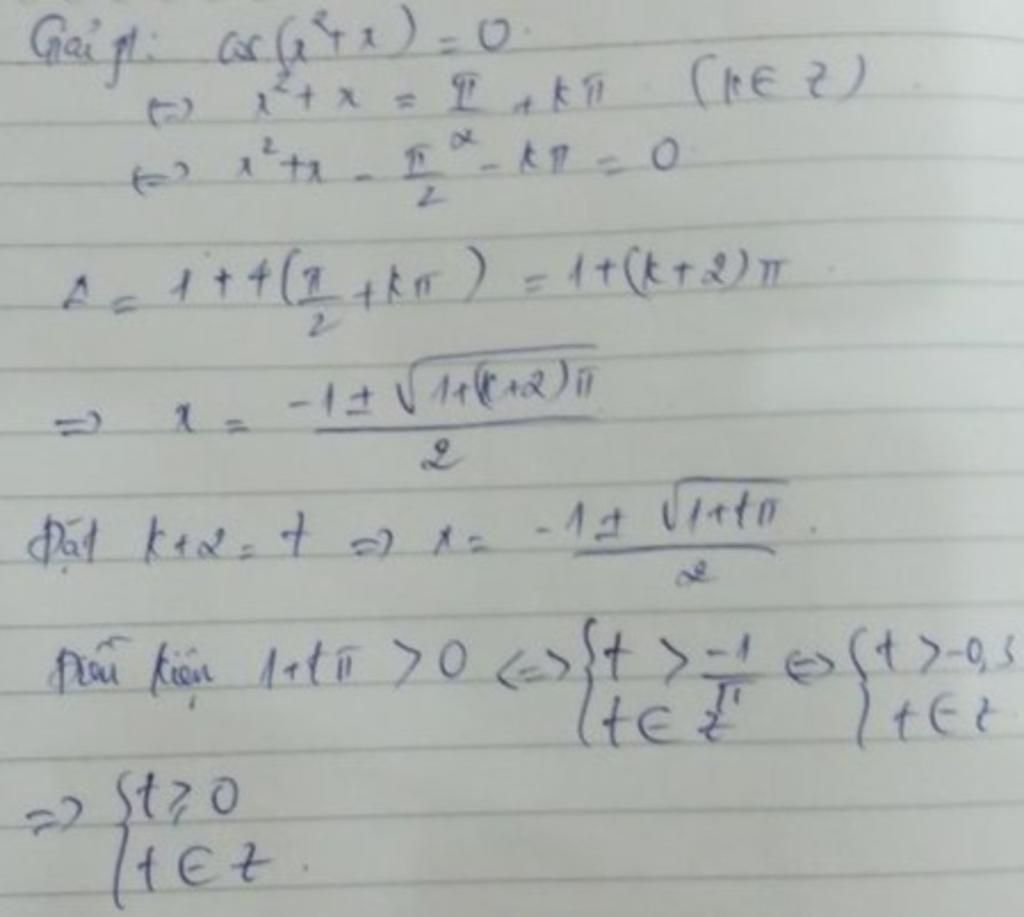 Giải pt: cos(x² + x) = 0.
<=> x² + x = π/2 + kπ (k ∈ Z)
<=> x² + x - π/2 - kπ = 0
Δ = 1 + 4(π/2 + kπ) = 1 + (k+2)π
=> x = (-1 ± √(1+(k+2)π))/2
Đặt k+2 = t => x = (-1 ± √(1+tπ))/2.
Điều kiện 1+tπ > 0 <=> { t > -1/π <=> { t > -0,3
t ∈ Z t ∈ Z
=> { t ≥ 0
t ∈ Z.